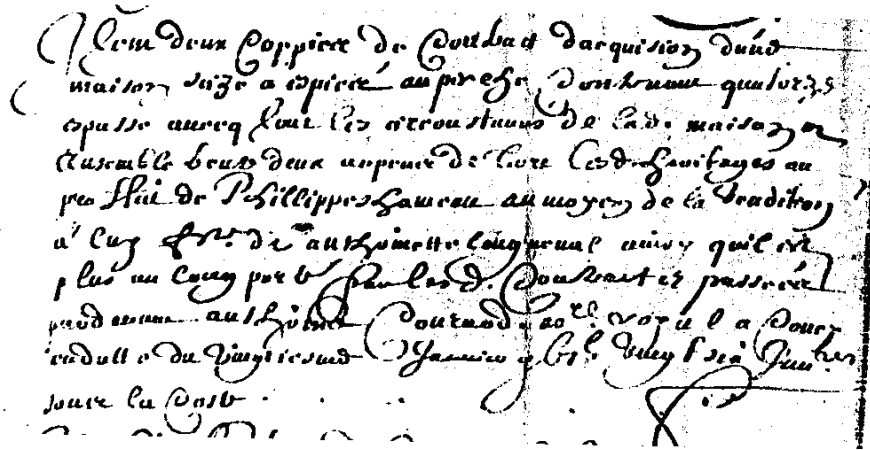 Item deux coppies de contract dacquision dune
maison size a espiers au perche Contenant quatorze
espasse avecq tout les circonstances de lad. maison et
Ensemble deux arpens de terre lesd. heritages au
proffict de Phillippes hameau au moyen de la vendition
a luy de anthoinette Longueval ainsy quil est
plus au long porté par lesd. Contractz passees
pardevant anthoine not. royal a
en datte du vingtiesme Janvier vingt six
soubz la Cotte